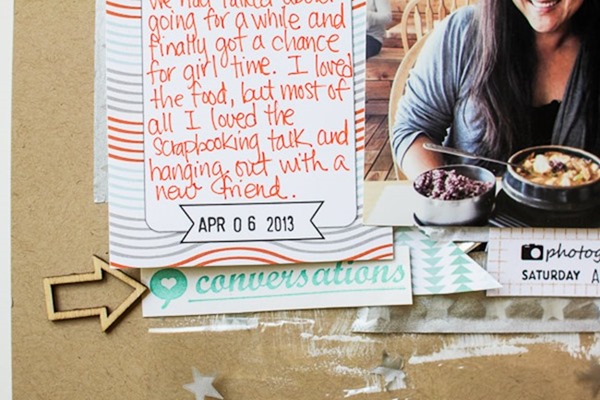 we had talked about
going for a while and
finally got a chance
for girl time. I loved
the food, but most of
all I loved the
scrapbooking talk and
hanging out with a
new friend.
APR 06 2013
conversations
photog
SATURDAY A